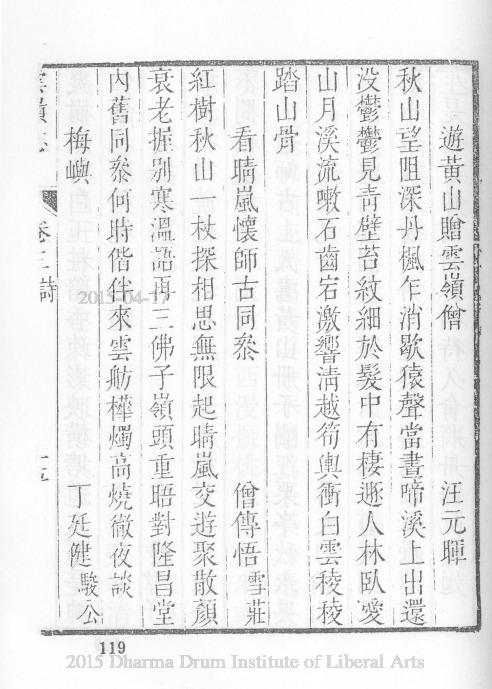 遊黃山贈雲嶺僧 汪元暉
秋山望阻深丹楓乍消歇猿聲當晝啼溪上出還
没鬱鬱見靑壁苔紋細於髮中有棲遯人林臥愛
山月溪流嗽石齒宕激響淸越筍輿衝白雲稜稜
踏山骨
看晴嵐懷師古同叅 僧傳悟 雪莊
紅樹秋山一杖探相思無限起晴嵐交遊聚散顏
衰老握別寒溫語再三佛子嶺頭重晤對隆昌堂
內舊同叅何時偕伴來雲舫樺燭高燒徹夜談
梅嶼 丁廷健 駿公
卷三詩
2015-04-17
119
2015 Dharma Drum Institute of Liberal Arts